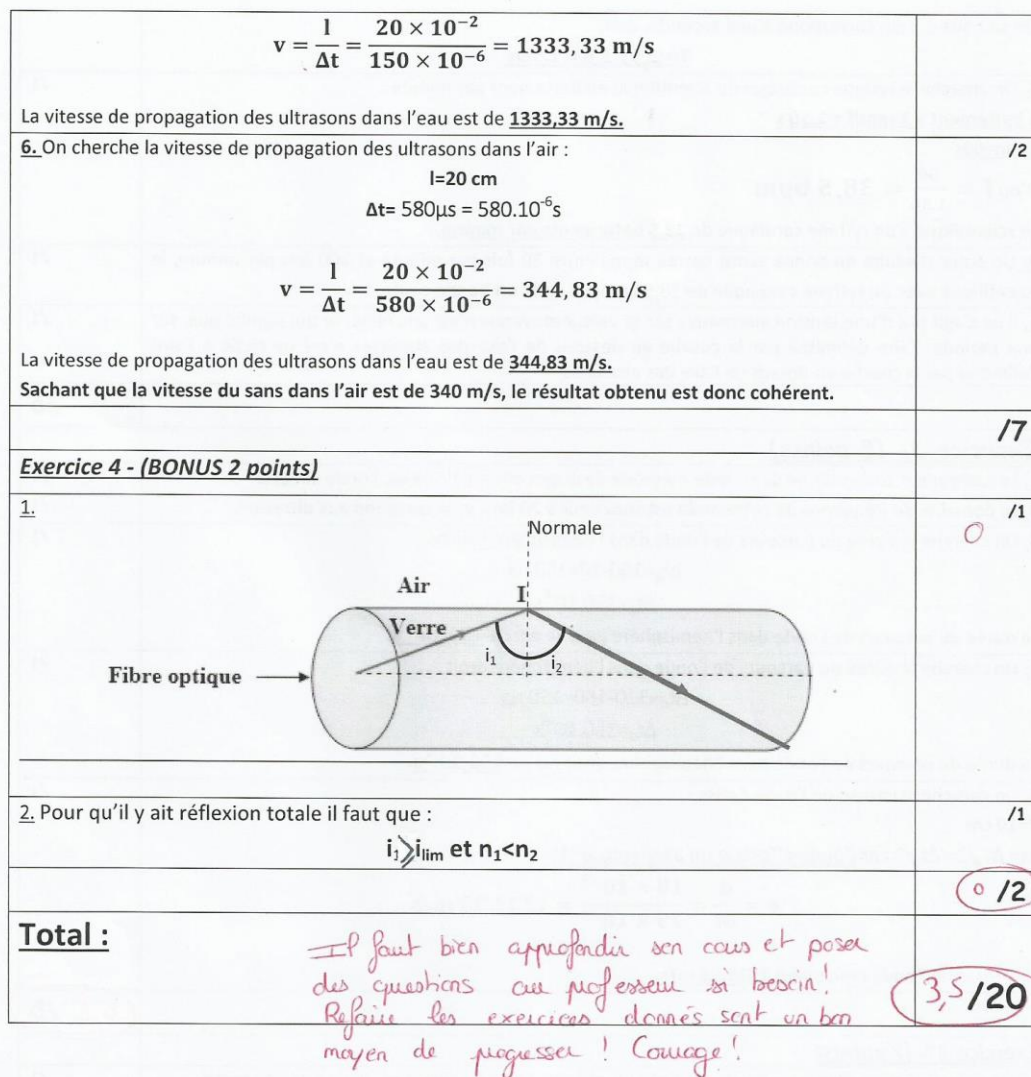 v = l/Δt = 20 × 10⁻²/150 × 10⁻⁶ = 1333,33 m/s
La vitesse de propagation des ultrasons dans l'eau est de 1333,33 m/s.
6. On cherche la vitesse de propagation des ultrasons dans l'air :
/2
l=20 cm
Δt= 580μs = 580.10⁻⁶s
v = l/Δt = 20 × 10⁻²/580 × 10⁻⁶ = 344,83 m/s
La vitesse de propagation des ultrasons dans l'eau est de 344,83 m/s.
Sachant que la vitesse du sans dans l'air est de 340 m/s, le résultat obtenu est donc cohérent.
/7
Exercice 4 - (BONUS 2 points)
1.
/1
0
Normale
Air
I
Verre
i₁
i₂
Fibre optique
2. Pour qu'il y ait réflexion totale il faut que :
/1
i₁⩾i_lim et n₁<n₂
0 /2
Total :
Il faut bien approfondir son cours et poser
des questions au professeur si besoin!
Refaire les exercices donnés sont un bon
moyen de progresser ! Courage !
3,5/20